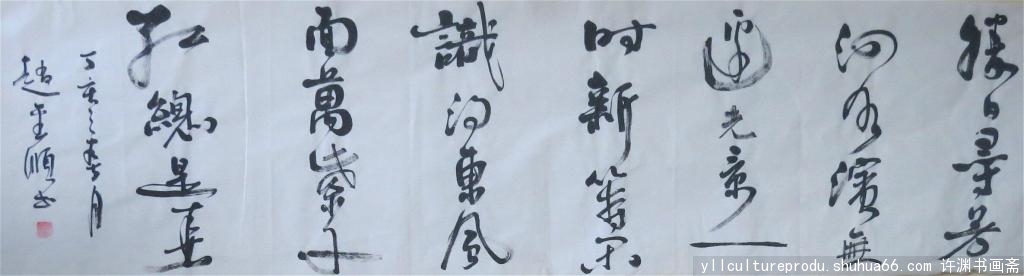 勝日尋芳
泗水濱無
邊光景一
时新等閑
識得東風
面萬紫千
红總是春
丁亥之春月
趙順书
yllcultureprodu.shuhua66.com 许渊书画斋